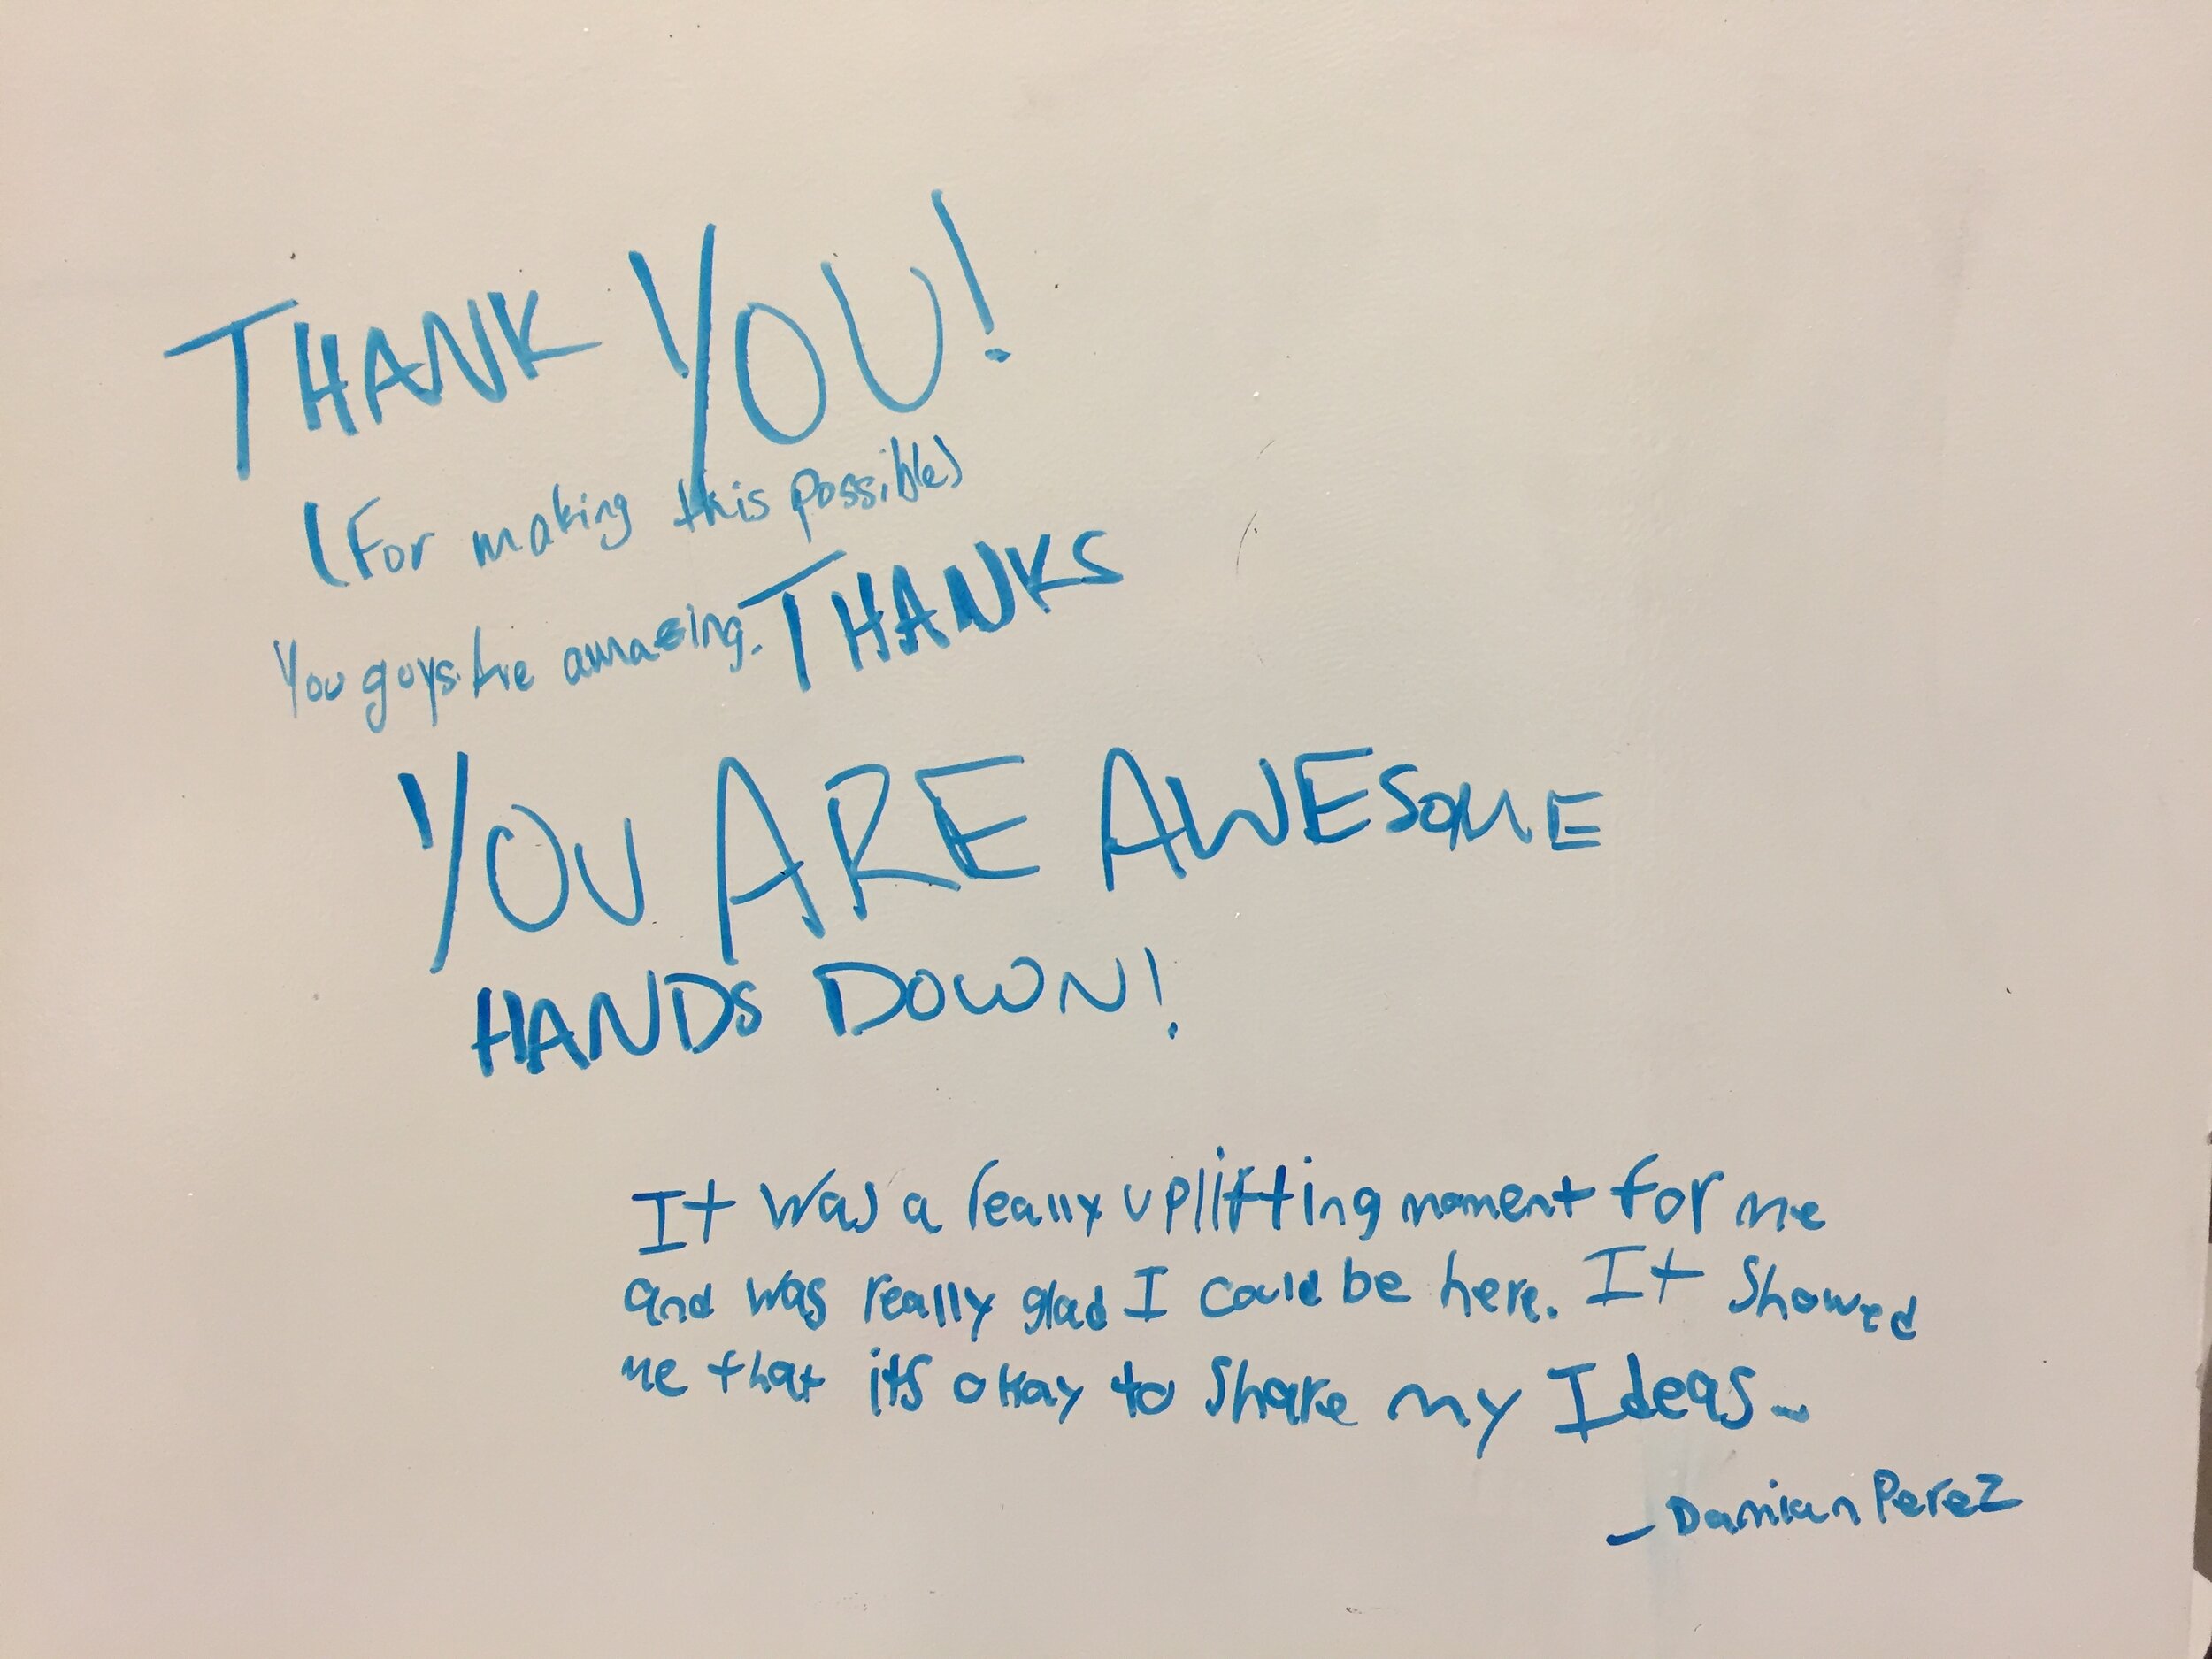 THANK YOU!
(For making this possible)
You guys Are amazing. THANKS
YOU ARE AWESOME
HANDS DOWN!
It was a really uplifting moment for me
and was really glad I could be here. It showed
me that its okay to share my Ideas-
- Damian Perez